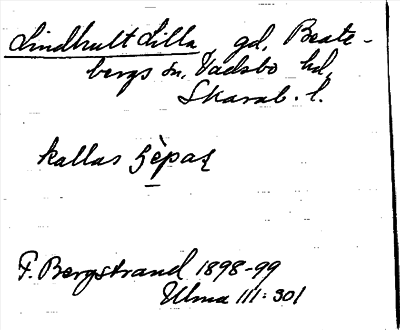 Lindhult Lilla, gd, Beate-
bergs sn, Vadsbo hd,
Skarab. l.
kallas
F. Bergstrand 1898-99
Ulma 111:301